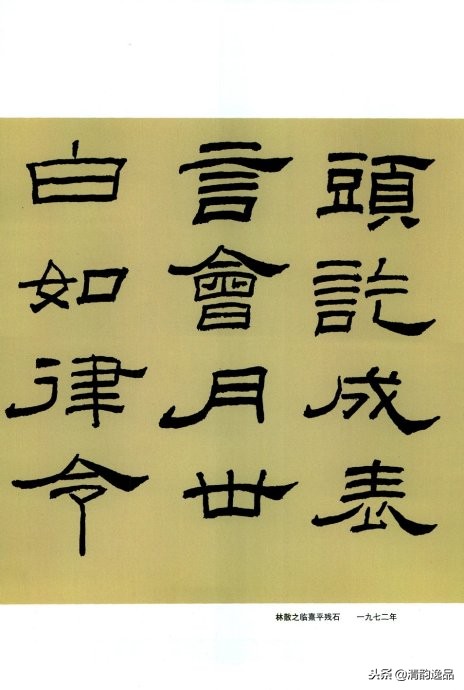 頭訖成表
言會月丗
白如律令
林散之临熹平残石 一九七二年
头条@清韵逸品